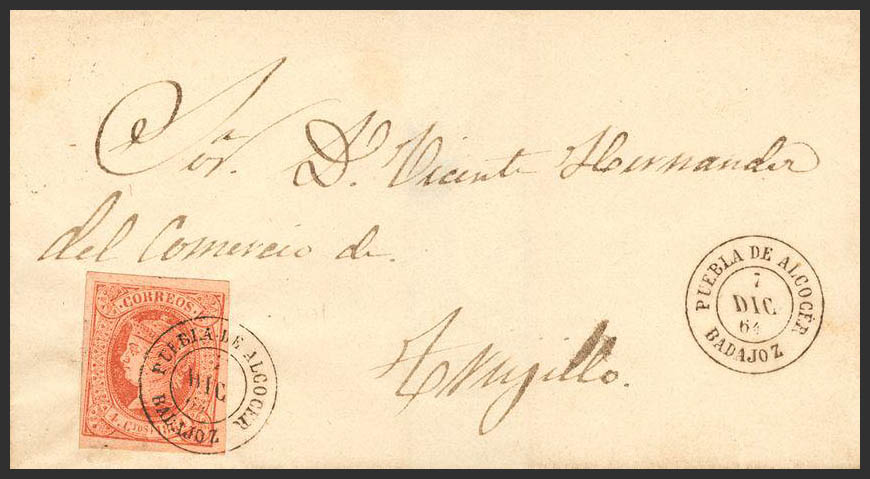 Sor. Dn. Vicente Hernandez
del Comercio de
Trujillo.
PUEBLA DE ALCOCER
7
DIC
64
BADAJOZ
CORREOS
PUEBLA DE ALCOCER
7
DIC
64
BADAJOZ